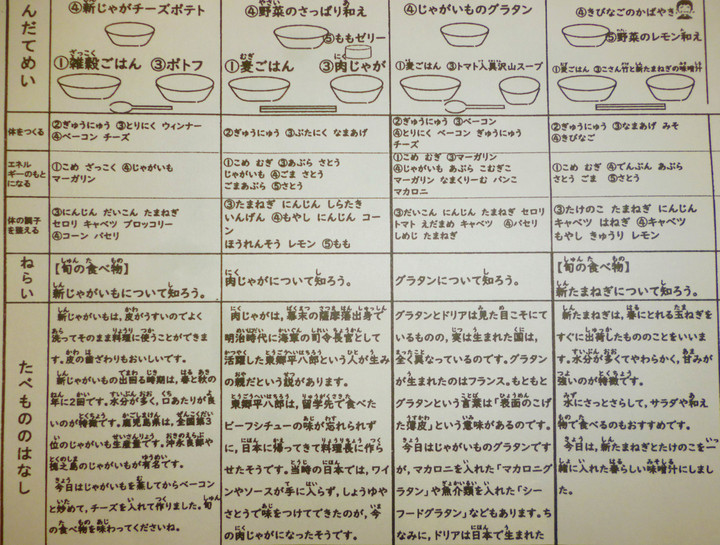 んだてめい
④新じゃがチーズポテト
①雑穀ごはん ③ポトフ
④野菜のさっぱり和え
⑤ももゼリー
①麦ごはん ③肉じゃが
④じゃがいものグラタン
①麦ごはん ③トマト入具沢山スープ
④きびなごのかばやき
⑤野菜のレモン和え
①麦ごはん ③こさん竹と新たまねぎの味噌汁
体をつくる
②ぎゅうにゅう ③とりにく ウィンナー
④ベーコン チーズ
②ぎゅうにゅう ③ぶたにく なまあげ
②ぎゅうにゅう ③ベーコン
④とりにく ベーコン ぎゅうにゅう
チーズ
②ぎゅうにゅう ③なまあげ みそ
④きびなご
エネル
ギーのもと
になる
①こめ ざっこく ④じゃがいも
マーガリン
①こめ むぎ ③あぶら さとう
じゃがいも ④ごま さとう
ごまあぶら ⑤さとう
①こめ むぎ ③マーガリン
④じゃがいも あぶら こむぎこ
マーガリン なまくりーむ パンこ
マカロニ
①こめ むぎ ④でんぷん あぶら
さとう ごま ⑤さとう
体の調子
を整える
③にんじん だいこん たまねぎ
セロリ キャベツ ブロッコリー
④コーン パセリ
③たまねぎ にんじん しらたき
いんげん ④もやし にんじん コー
ン
ほうれんそう レモン ⑤もも
③だいこん にんじん たまねぎ セロリ
トマト えだまめ キャベツ ④パセリ
しめじ たまねぎ
③たけのこ たまねぎ にんじん
キャベツ はねぎ ④キャベツ
もやし きゅうり レモン
ねらい
【旬の食べ物】
新じゃがいもについて知ろう。
肉じゃがについて知ろう。
グラタンについて知ろう。
【旬の食べ物】
新たまねぎについて知ろう。
たべもののはなし
新じゃがいもは、皮がうすいのでよく
洗ってそのまま料理に使うことができま
す。皮の歯ざわりもおいしいです。
新じゃがいもでまわる時期は、春と秋の
年に2回です。水分が多く、口あたりが良
いのが特徴です。鹿児島県は、全国第3
位のじゃがいも生産量です。沖永良部や
徳之島のじゃがいもが有名です。
今日はじゃがいもを蒸してからベーコン
と炒めて、チーズを入れて作りました。旬
の食べ物を味わってくださいね。
肉じゃがは、幕末の薩摩藩出身で
明治時代に海軍の司令長官として
活躍した東郷平八郎という人が生み
の親だという説があります。
東郷平八郎は、留学先で食べた
ビーフシチューの味が忘れられず
に、日本に帰ってきて料理長に作ら
せたそうです。当時の日本では、ワイ
ンやソースが手に入らず、しょうゆや
さとうで味をつけてできたのが、今
の肉じゃがになったそうです。
グラタンとドリアは見た目こそにて
いるものの、実は生まれた国は、
全く異なっているのです。グラタン
が生まれたのはフランス。もともと
グラタンという言葉は「表面のこげ
た薄皮」という意味があるのです。
今日はじゃがいものグラタンです
が、マカロニを入れた「マカロニグ
ラタン」や魚介類を入れた「シー
フードグラタン」などもあります。ち
なみに、ドリアは日本で生まれた
新たまねぎは、春にとれる玉ねぎを
すぐに出荷したもののことをいいま
す。水分が多くてやわらかく、甘みが
強いのが特徴です。
水にさっとさらして、サラダや和え
物で食べるのもおすすめです。
今日は、新たまねぎとたけのこを一
緒に入れた春らしい味噌汁にしまし
た。